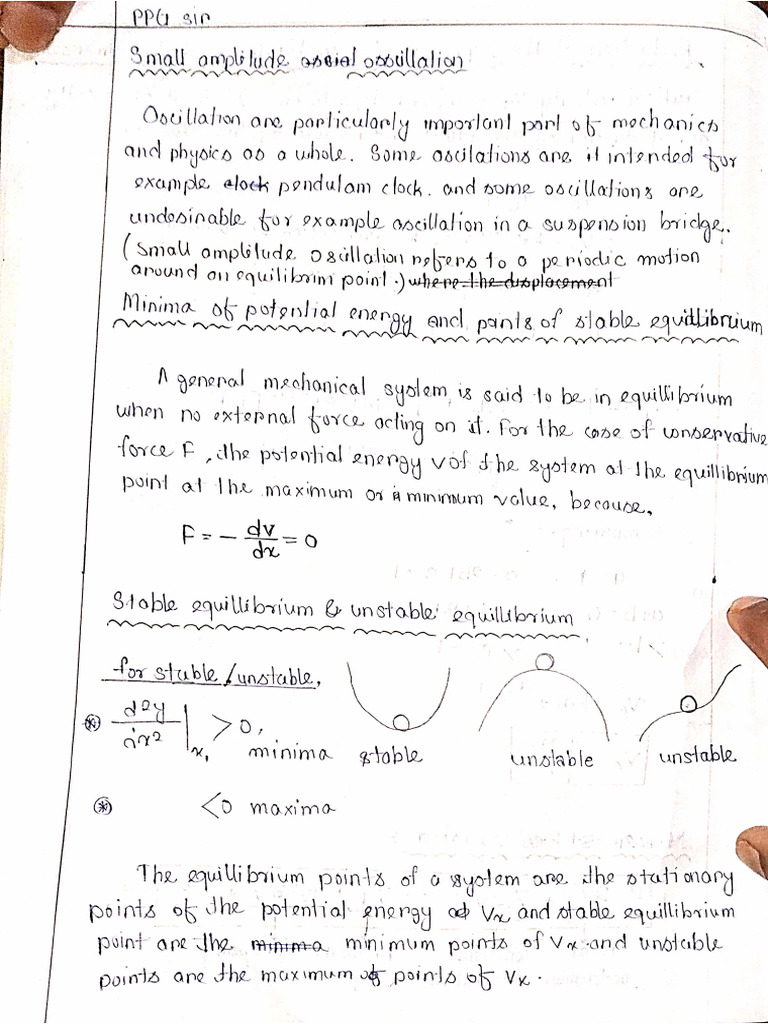 PPG sir
Small amplitude oscillation
Oscillation are particularly important part of mechanics
and physics as a whole. Some oscilations are it intended for
example clock pendulam clock. and some oscillations are
undesirable for example oscillation in a suspension bridge.
(Small amplitude oscillation refers to a periodic motion
around an equilibrim point.) where the displacement
Minima of potential energy and points of stable equillibruium
A general mechanical system is said to be in equillibrium
when no external force acting on it. For the case of conservative
force F, the potential energy v of the system at the equillibrium
point at the maximum or minimum value, because,
F = - dv/dx = 0
Stable equillibrium & unstable equillibrium
for stable/unstable,
⊛ d²y/dx² |x₁ > 0, minima stable unstable unstable
⊛ <0 maxima
The equillibrium points of a system are the stationary
points of the potential energy Vx and stable equillibrium
point are the minima minimum points of Vx and unstable
points are the maximum of points of Vx.